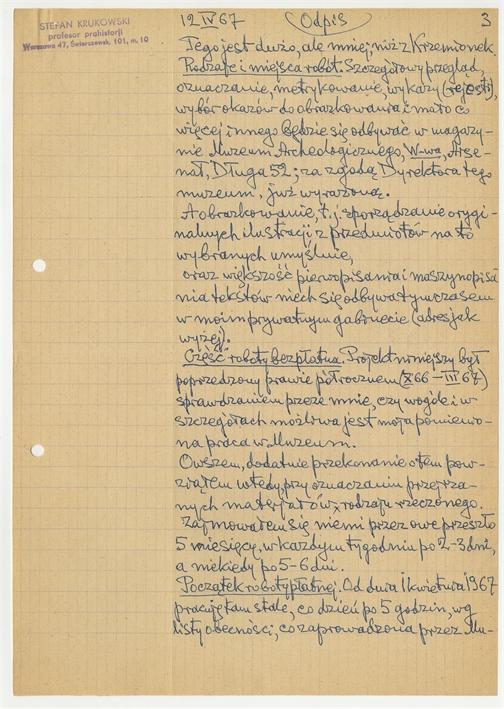 STEFAN KRUKOWSKI
profesor prahistorji
Warszawa 47, Świerczewsk. 101, m. 10
12 IV 67
Odpis
3
Tego jest dużo, ale mniej, niż z Krzemionek.
Rodzaje i miejsca robót. Szczegółowy przegląd,
oznaczanie, metrykowanie, wykazy (rejestr),
wybór okazów do obrazkowania i mało co
więcej innego będzie się odbywać w magazy-
nie Muzeum Archeologicznego, W-wa, Arse-
nał, Długa 52; za zgodą Dyrektora tego
muzeum, już wyrażoną.
A obrazkowanie, t. j. sporządzanie orygi-
nalnych ilustracji z przedmiotów na to
wybranych umyślnie,
oraz większość pierwopisania i maszynopisa
nia tekstów niech się odbywa tymczasem
w moim prywatnym gabinecie (adres jak
wyżej).
Część roboty bezpłatna. Projekt niniejszy był
poprzedzony prawie półrocznem (X 66 – III 67)
sprawdzaniem przeze mnie, czy wogóle i w
szczegółach możliwa jest moja ponowo-
na praca w Muzeum.
Owszem, dodatnie przekonanie o tem pow-
ziąłem wtedy, przy oznaczaniu przejrza-
nych materjałów, rodzaju rzeczonego.
Zajmowałem się niemi przez owe przeszło
5 miesięcy, w każdym tygodniu po 2-3 dni,
a niekiedy po 5-6 dni.
Początek roboty płatnej. Od dnia 1 kwietnia 1967
pracuję tam stale, co dzień po 5 godzin, wg
listy obecności, co zaprowadzona przez Mu-